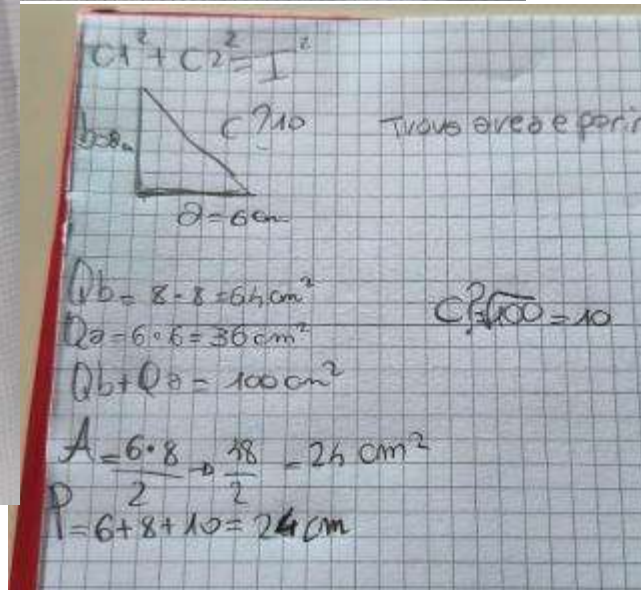 C1² + C2² = I²
b=8cm
C ? 10
Trova area e perim
a = 6cm
Qb = 8 · 8 = 64 cm²
Qa = 6 · 6 = 36 cm²
C? = √100 = 10
Qb + Qa = 100 cm²
A = 6·8/2 → 48/2 = 24 cm²
P = 6 + 8 + 10 = 24 cm